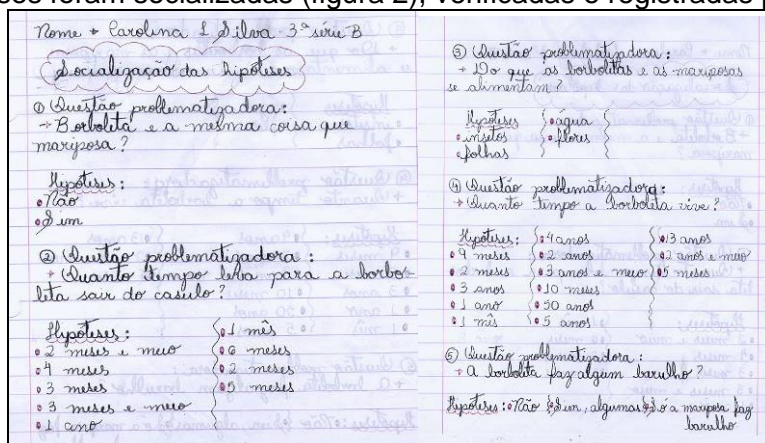 ses foram socializadas (figura 2), verificadas e registradas
Nome → Carolina L Silva - 3ª série B
Socialização das hipóteses
① Questão problematizadora:
→ Borboleta é a mesma coisa que
mariposa?
Hipóteses:
• Não
• Sim
② Questão problematizadora:
→ Quanto tempo leva para a borbo-
leta sair do casulo?
Hipóteses:
• 2 meses e meio
• 4 meses
• 3 meses
• 3 meses e meio
• 1 ano
• 1 mês
• 6 meses
• 2 meses
• 5 meses
③ Questão problematizadora:
→ Do que as borboletas e as mariposas
se alimentam?
Hipóteses
• insetos
• folhas
• água
• flores
④ Questão problematizadora:
→ Quanto tempo a borboleta vive?
Hipóteses:
• 9 meses
• 2 meses
• 3 anos
• 1 ano
• 1 mês
• 4 anos
• 2 anos
• 3 anos e meio
• 10 meses
• 50 anos
• 5 anos
• 13 anos
• 2 anos e meio
• 5 meses
⑤ Questão problematizadora:
→ A borboleta faz algum barulho?
Hipóteses: • Não • Sim, algumas • Só a mariposa faz
barulho